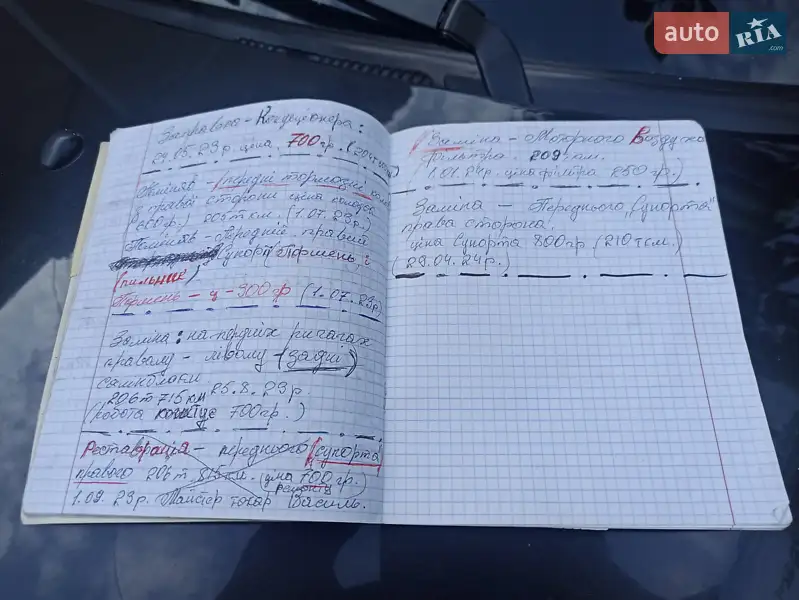 Заправка - Кондеціонера:
29.05.23р. ціна. 700гр. (204т км)
Помінав - передні тормозні колод
з правої сторони ціна колодок
600ф.) 205т км. (1.07.23р.)
Помінав - Передній, правий
Супорт (Поршень, і
(пильник)
Поршень - ц - 900 ф (1.07.23р)
Заміна: на передніх ричагах
правому - лівому - (задні)
самлблоки
206т 715км 25.8.23р.
(робота коштує 700гр.)
Реставрація - переднього (супорта
правого 206т 815км. (ціна 700гр.)
ремонту
1.09.23р. Майстер токар Василь.
Заміна - Моторного Воздушно
фільтра. 209т км.
1.01.24р. ціна фільтра 250 гр.)
Заміна - Переднього "Супорта"
права сторона.
ціна Супорта 800гр (210т км.)
(29.04.24р.)
auto RIA.com